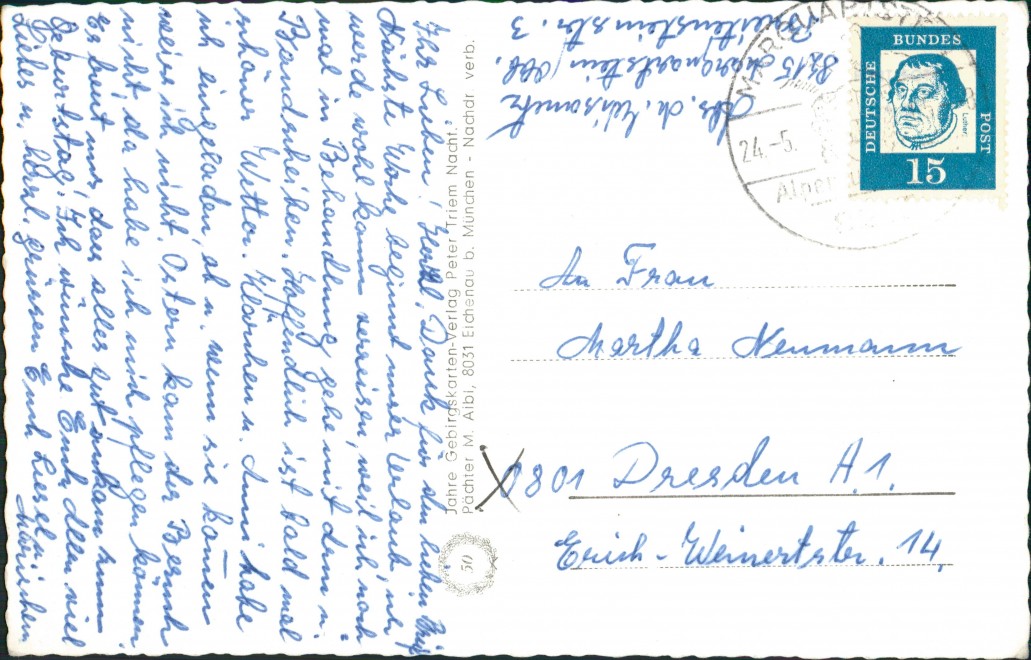 Ihr Lieben! Herzl. Dank für den lieben Brief
Nächste Woche beginnt unser Urlaub, ich
werde wohl kaum verreisen, weil ich noch
mal in Behandlung gehe mit dem
Bandscheiben. Hoffendlich ist bald mal
schöner Wetter. Klärchen u. Anni habe
ich eingeladen, ob u. wenn sie kommen
weiss ich nicht. Ostern kam der Besuch
nicht, da habe ich mich pflegen können
Es freut uns, das alles gut ankam zum
Geburtstag! Ich wünsche Euch allen viel
Liebes u. herzl. grüssen Euch
Mariechen
Jahre Gebirgskarten-Verlag Peter Triem Nacht.
Pächter M. Aibi, 8031 Eichenau b. München - Nachdr verb.
50
Abs. Ch.
8215 Marquartstein/Obb.
str. 3
MARQUARTSTEIN
24.-5.
DEUTSCHE
BUNDES
POST
Luther
15
An Frau
Martha Neumann
X 801 Dresden A.1.
Erich-Weinertstr. 14,